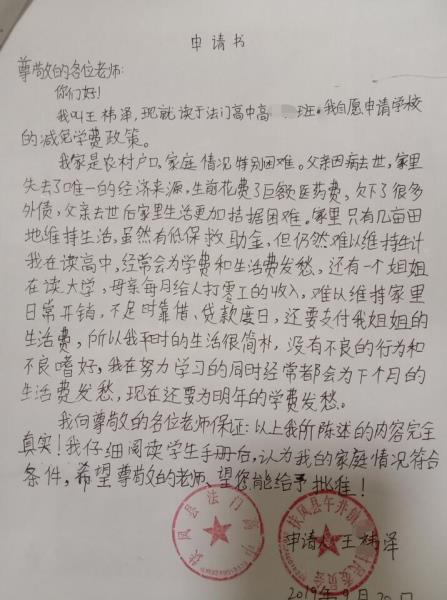 申请书
尊敬的各位老师:
你们好!
我叫王炜泽,现就读于法门高中高 班。我自愿申请学校
的减免学费政策。
我家是农村户口,家庭情况特别困难。父亲因病去世,家里
失去了唯一的经济来源,生前花费了巨额医药费,欠下了很多
外债,父亲去世后家里生活更加拮据困难。家里只有几亩田
地维持生活,虽然有低保救助金,但仍然难以维持生计
我在读高中,经常会为学费和生活费发愁,还有一个姐姐
在读大学,母亲每月给人打零工的收入,难以维持家里
日常开销,不足时靠借、贷款度日,还要支付我姐姐的
生活费,所以我平时的生活很简朴,没有不良的行为和
不良嗜好,我在努力学习的同时经常都会为下个月的
生活费发愁,现在还要为明年的学费发愁。
我向尊敬的各位老师保证:以上我所陈述的内容完全
真实!我仔细阅读学生手册后,认为我的家庭情况符合
条件,希望尊敬的老师、望您能给予批准!
扶风县法门高中
扶风县午井镇 村民委员会
申请人:王炜泽
2019年9月20日